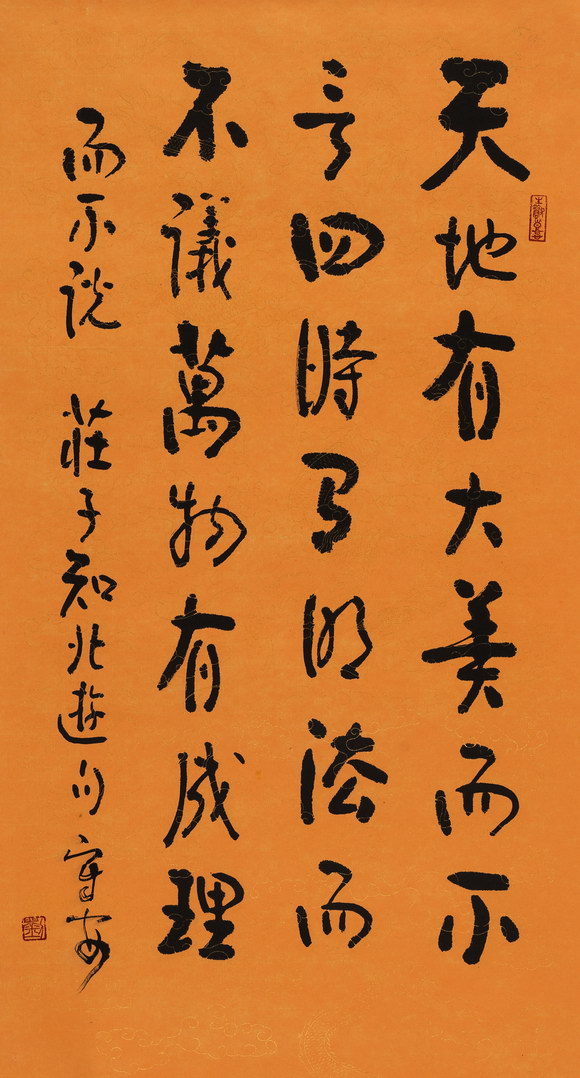 天地有大美而不
言四時有明法而
不議萬物有成理
而不說 莊子知北遊句 守安